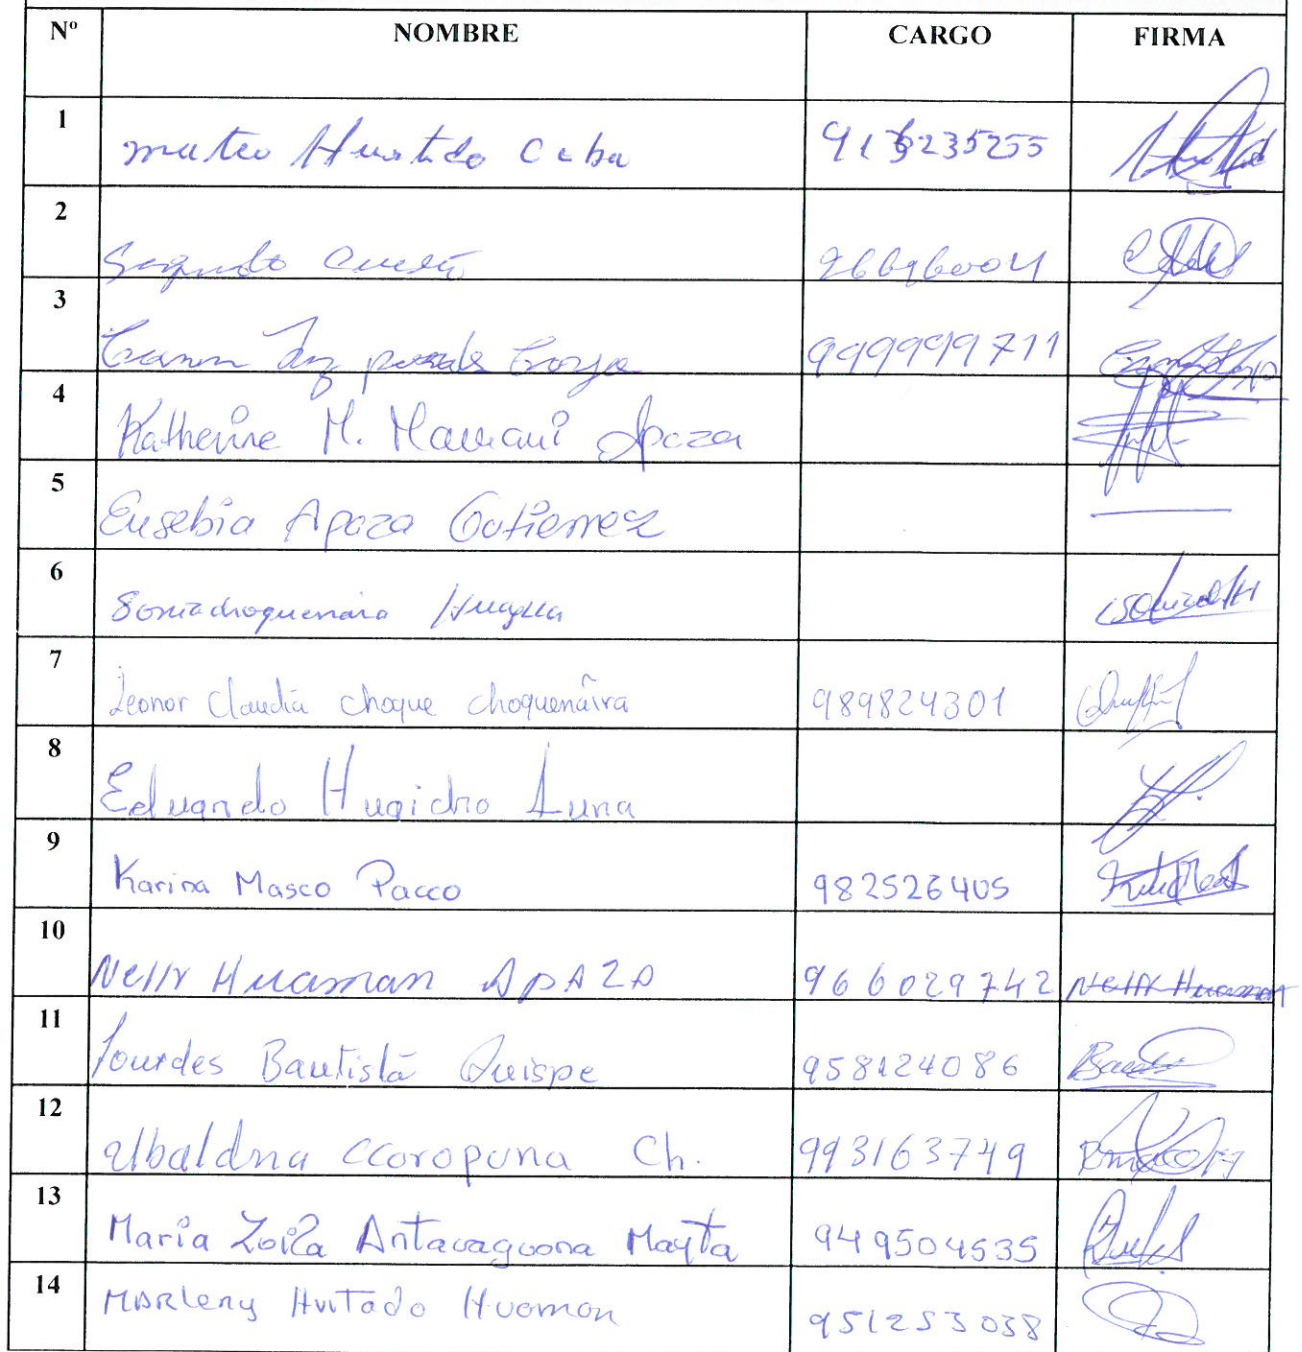 Nº NOMBRE CARGO FIRMA
1 mateo Hurtado Caba 913235255
2 Segundo 266960004
3 999999711
4 Katherine M. Mamani Apaza
5 Eusebia Apaza Gutierrez
6 Sonia choquenaira Huaylla
7 Leonor Claudia choque choquenaira 989824301
8 Eduardo Huaicho Luna
9 Karina Masco Pacco 982526405
10 Nelly Huaman APAZA 966029742 Nelly Huaman
11 Lourdes Bautista Quispe 958124086
12 ubaldina ccoropuna Ch. 993163749
13 Maria Zoila Antavaguona Mayta 949504535
14 MARleny Hurtado Huaman 951253038